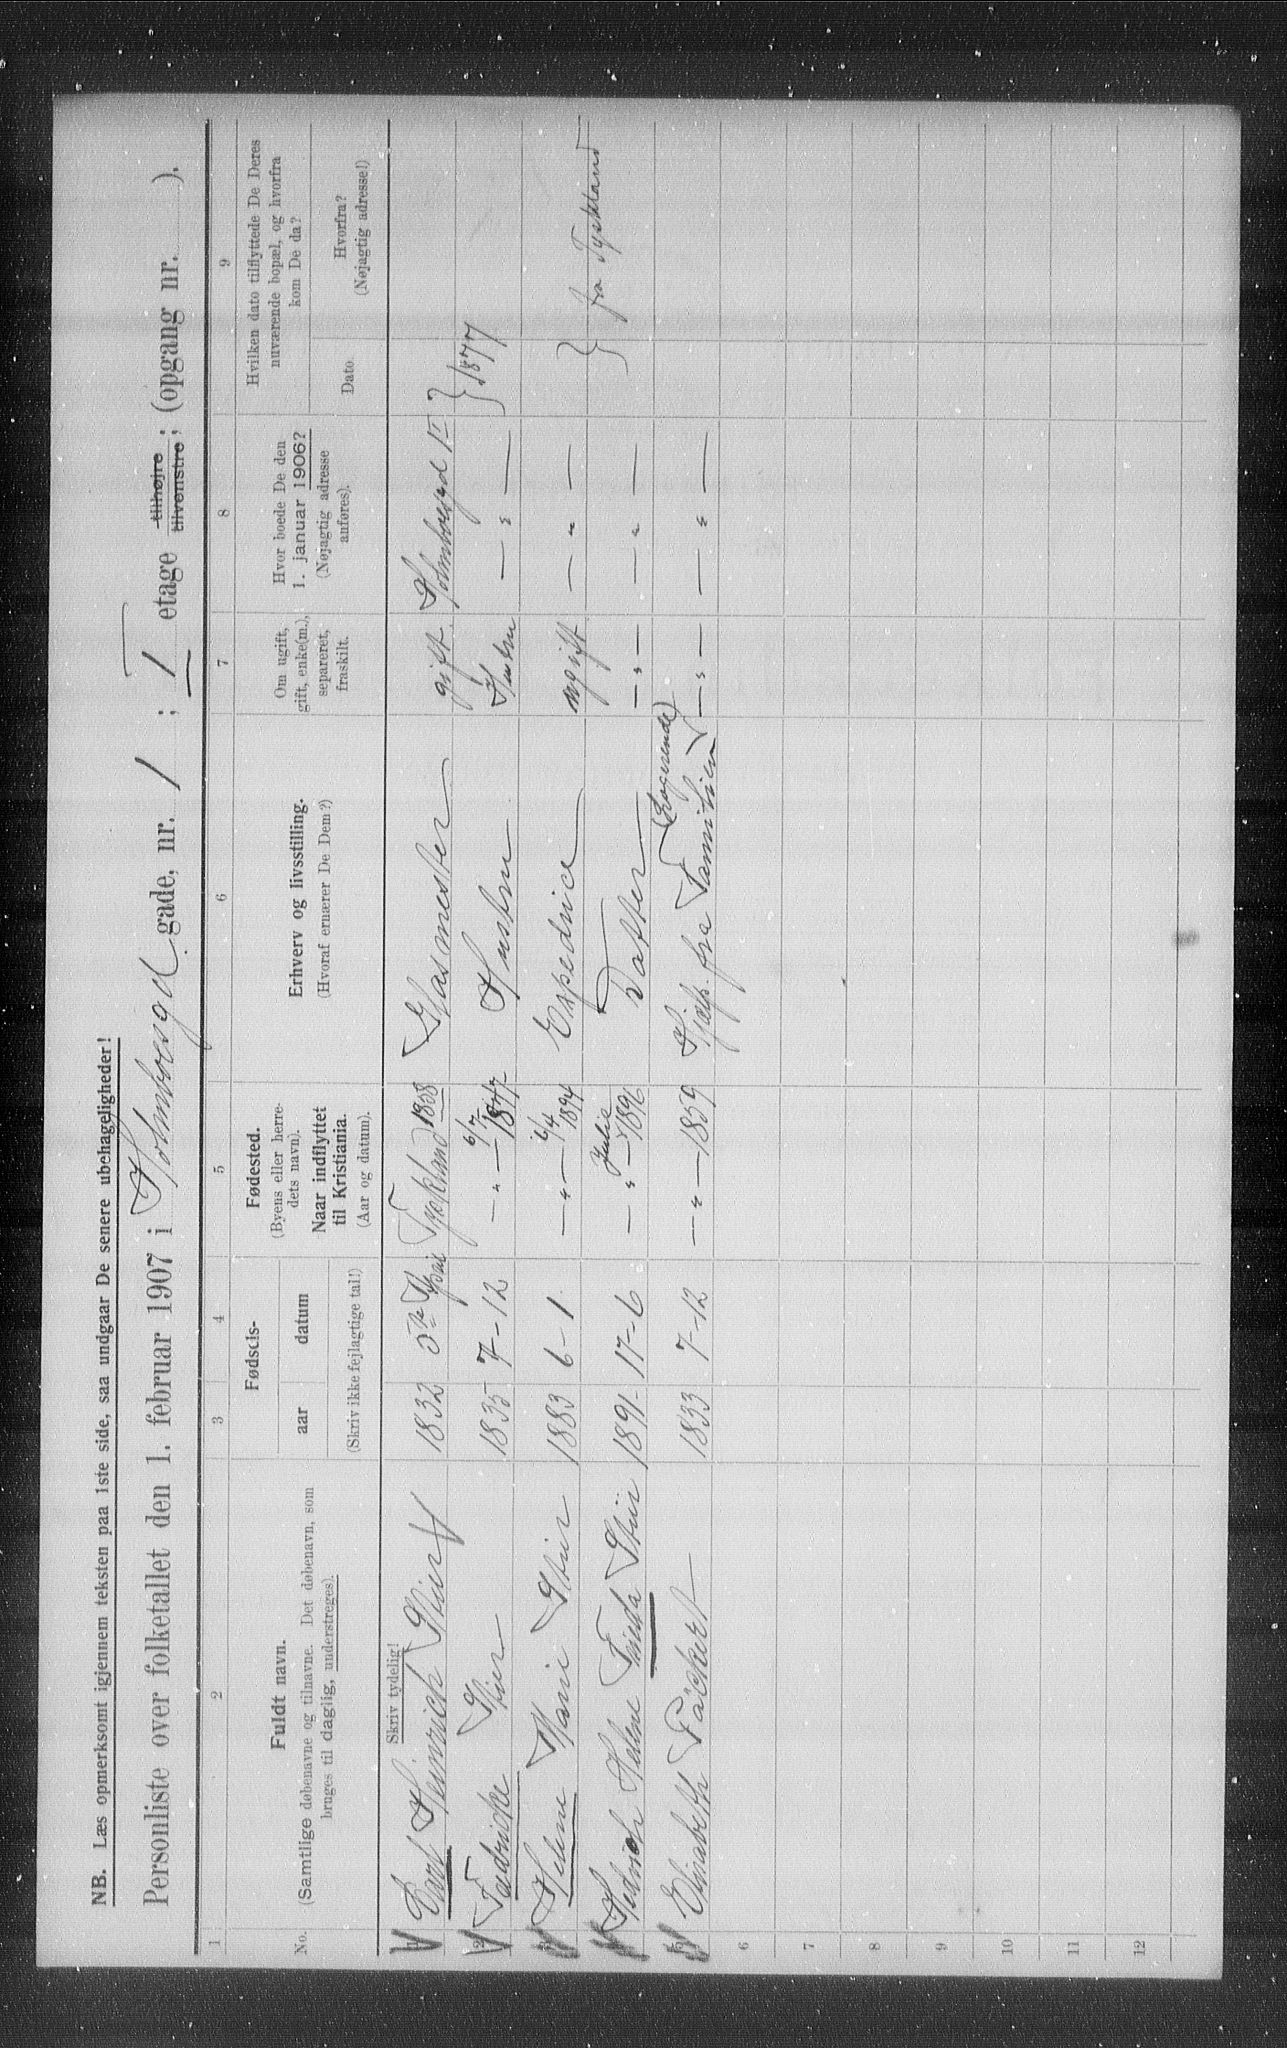 NB. Læs opmerksomt igjennem teksten paa 1ste side, saa undgaar De senere ubehageligheder!
Personliste over folketallet den 1. februar 1907 i Holmboesgd. gade, nr. 1 ; I etage tilhøjre tilvenstre; (opgang nr. ).
1 2 3 4 5 6 7 8 9
No.
Fuldt navn.
(Samtlige døbenavne og tilnavne. Det døbenavn, som
bruges til daglig, understreges).
Skriv tydelig!
Fødsels-
aar datum
(Skriv ikke fejlagtige tal!)
Fødested.
(Byens eller herre-
dets navn).
Naar indflyttet
til Kristiania.
(Aar og datum).
Erhverv og livsstilling.
(Hvoraf ernærer De Dem?)
Om ugift,
gift, enke(m.),
separeret,
fraskilt.
Hvor boede De den
1. januar 1906?
(Nøjagtig adresse
anføres).
Hvilken dato tilflyttede De Deres
nuværende bopæl, og hvorfra
kom De da?
Dato
Hvorfra?
(Nøjagtig adresse!)
1 Carl Heinrich Stür 1832 Tyskland 1858 Glasmester gift Holmboesgd 1 } 1877
2 Stür 1835 7-12 — „ — 6/7 1877 Hustru Hustru — „ —
3 Helene Marie Stür 1883 6-1 — „ — 6/4 1894 Expedrice ugift — „ — } fra Tyskland
4 Helene Frieda Stür 1891 17-6 — „ — Julie 1896 Datter — „ — — „ —
5 Elisabeth 1833 7-12 — „ — 1859 Hjælp. fra Familien (Logerende) — „ — — „ —
6
7
8
9
10
11
12